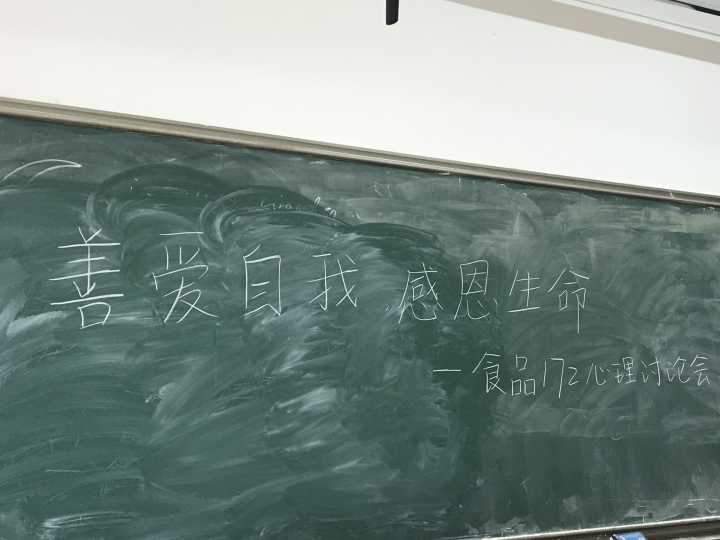 善爱自我 感恩生命
—食品172心理讨论会